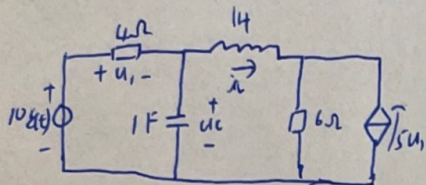 4Ω
1H
+ u₁ -
i
+
10ε(t)
-
1F
+
uc
-
6Ω
5u₁